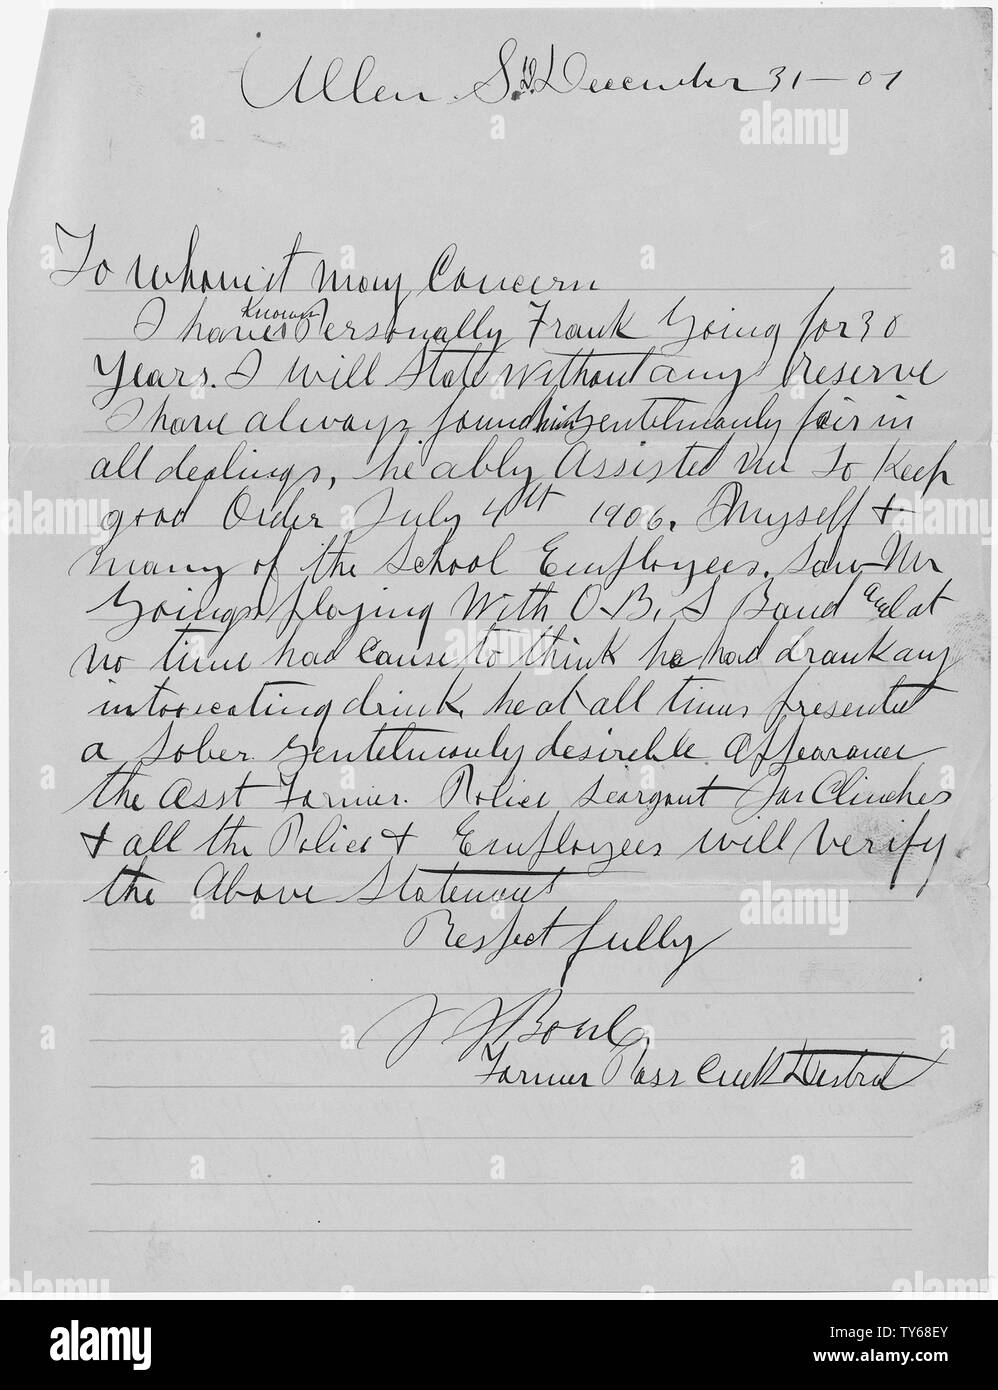 Allen S.D. December 31 - 07
To whom it may Concern
I have Known Personally Frank Going for 30
Years. I will State without any reserve
I have always found him gentelmanly fair in
all dealings, he ably Assisted me To Keep
good Order July 4th 1906. Myself +
many of the School Employees. Saw Mr
Goings playing With O.B.S Band and at
no time had Cause to think he had drank any
intoxecating drink, he at all times presented
a Sober gentelmanly desireble Appearance
the Asst Farmer. Police Seargant Jas Clinches
+ all the Police + Employees will Verify
the Above Statement
Respectfully
J J
Farmer Pass Creek District
alamy
a
TY68EY
www.alamy.com